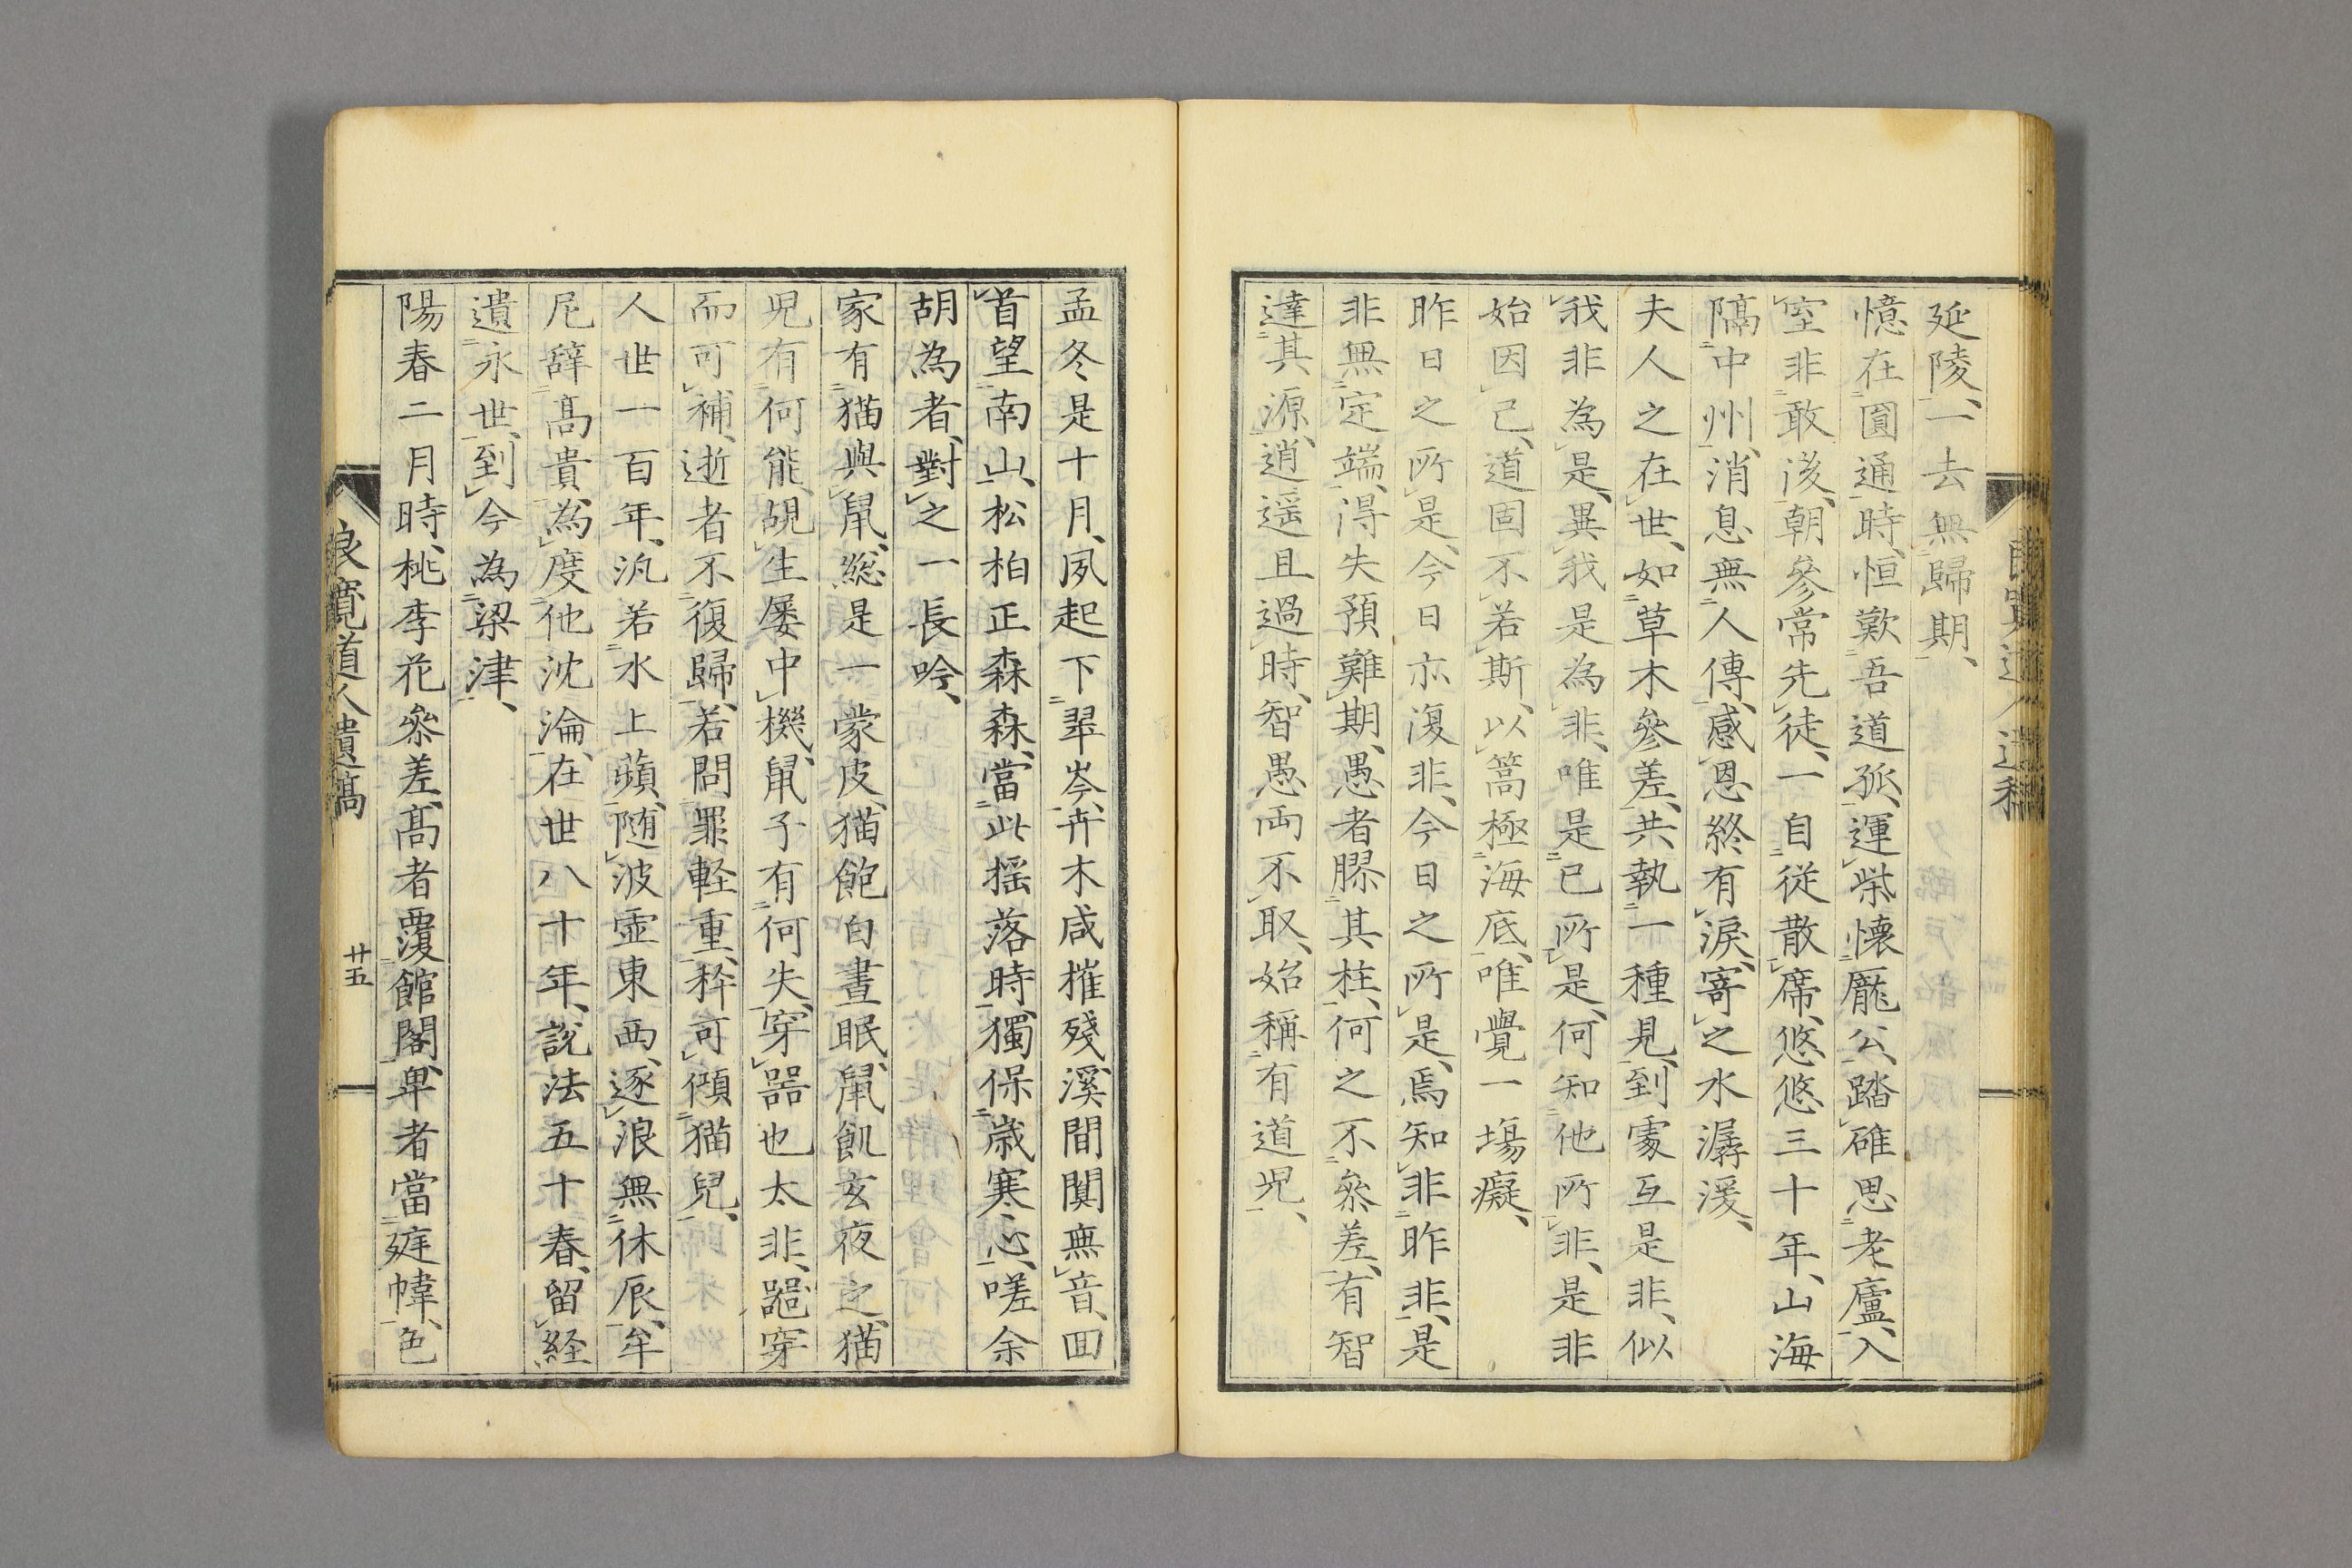 延陵、一去無歸期、
憶在圓通時、恒歎吾道孤、運柴懷龐公、踏碓思老廬、入
室非敢後、朝參常先徒、一自從散席、悠悠三十年、山海
隔中州、消息無人傳、感恩終有淚、寄之水潺湲、
夫人之在世、如草木參差、共執一種見、到處互是非、似
我非為是、異我是為非、唯是已所是、何知他所非、是非
始因己、道固不若斯、以篙極海底、唯覺一場癡、
昨日之所是、今日亦復非、今日之所是、焉知非昨非、是
非無定端、得失預難期、愚者膠其柱、何之不參差、有智
達其源、逍遥且過時、智愚兩不取、始稱有道児、
孟冬是十月、夙起下翠岑、卉木咸摧殘、溪間闃無音、回
首望南山、松柏正森森、當此揺落時、獨保歳寒心、嗟余
胡為者、對之一長吟、
家有猫與鼠、総是一蒙皮、猫飽白晝眠、鼠飢玄夜之、猫
児有何能、覘生屡中機、鼠子有何失、穿器也太非、器穿
而可補、逝者不復歸、若問罪軽重、秤可傾猫兒、
人世一百年、汎若水上蘋、随波虚東西、逐浪無休辰、牟
尼辞高貴、為度他沈淪、在世八十年、説法五十春、留経
遺永世、到今為梁津、
陽春二月時、桃李花參差、高者覆館閣、卑者當庭幃、色
良寛道人遺稿
廿五